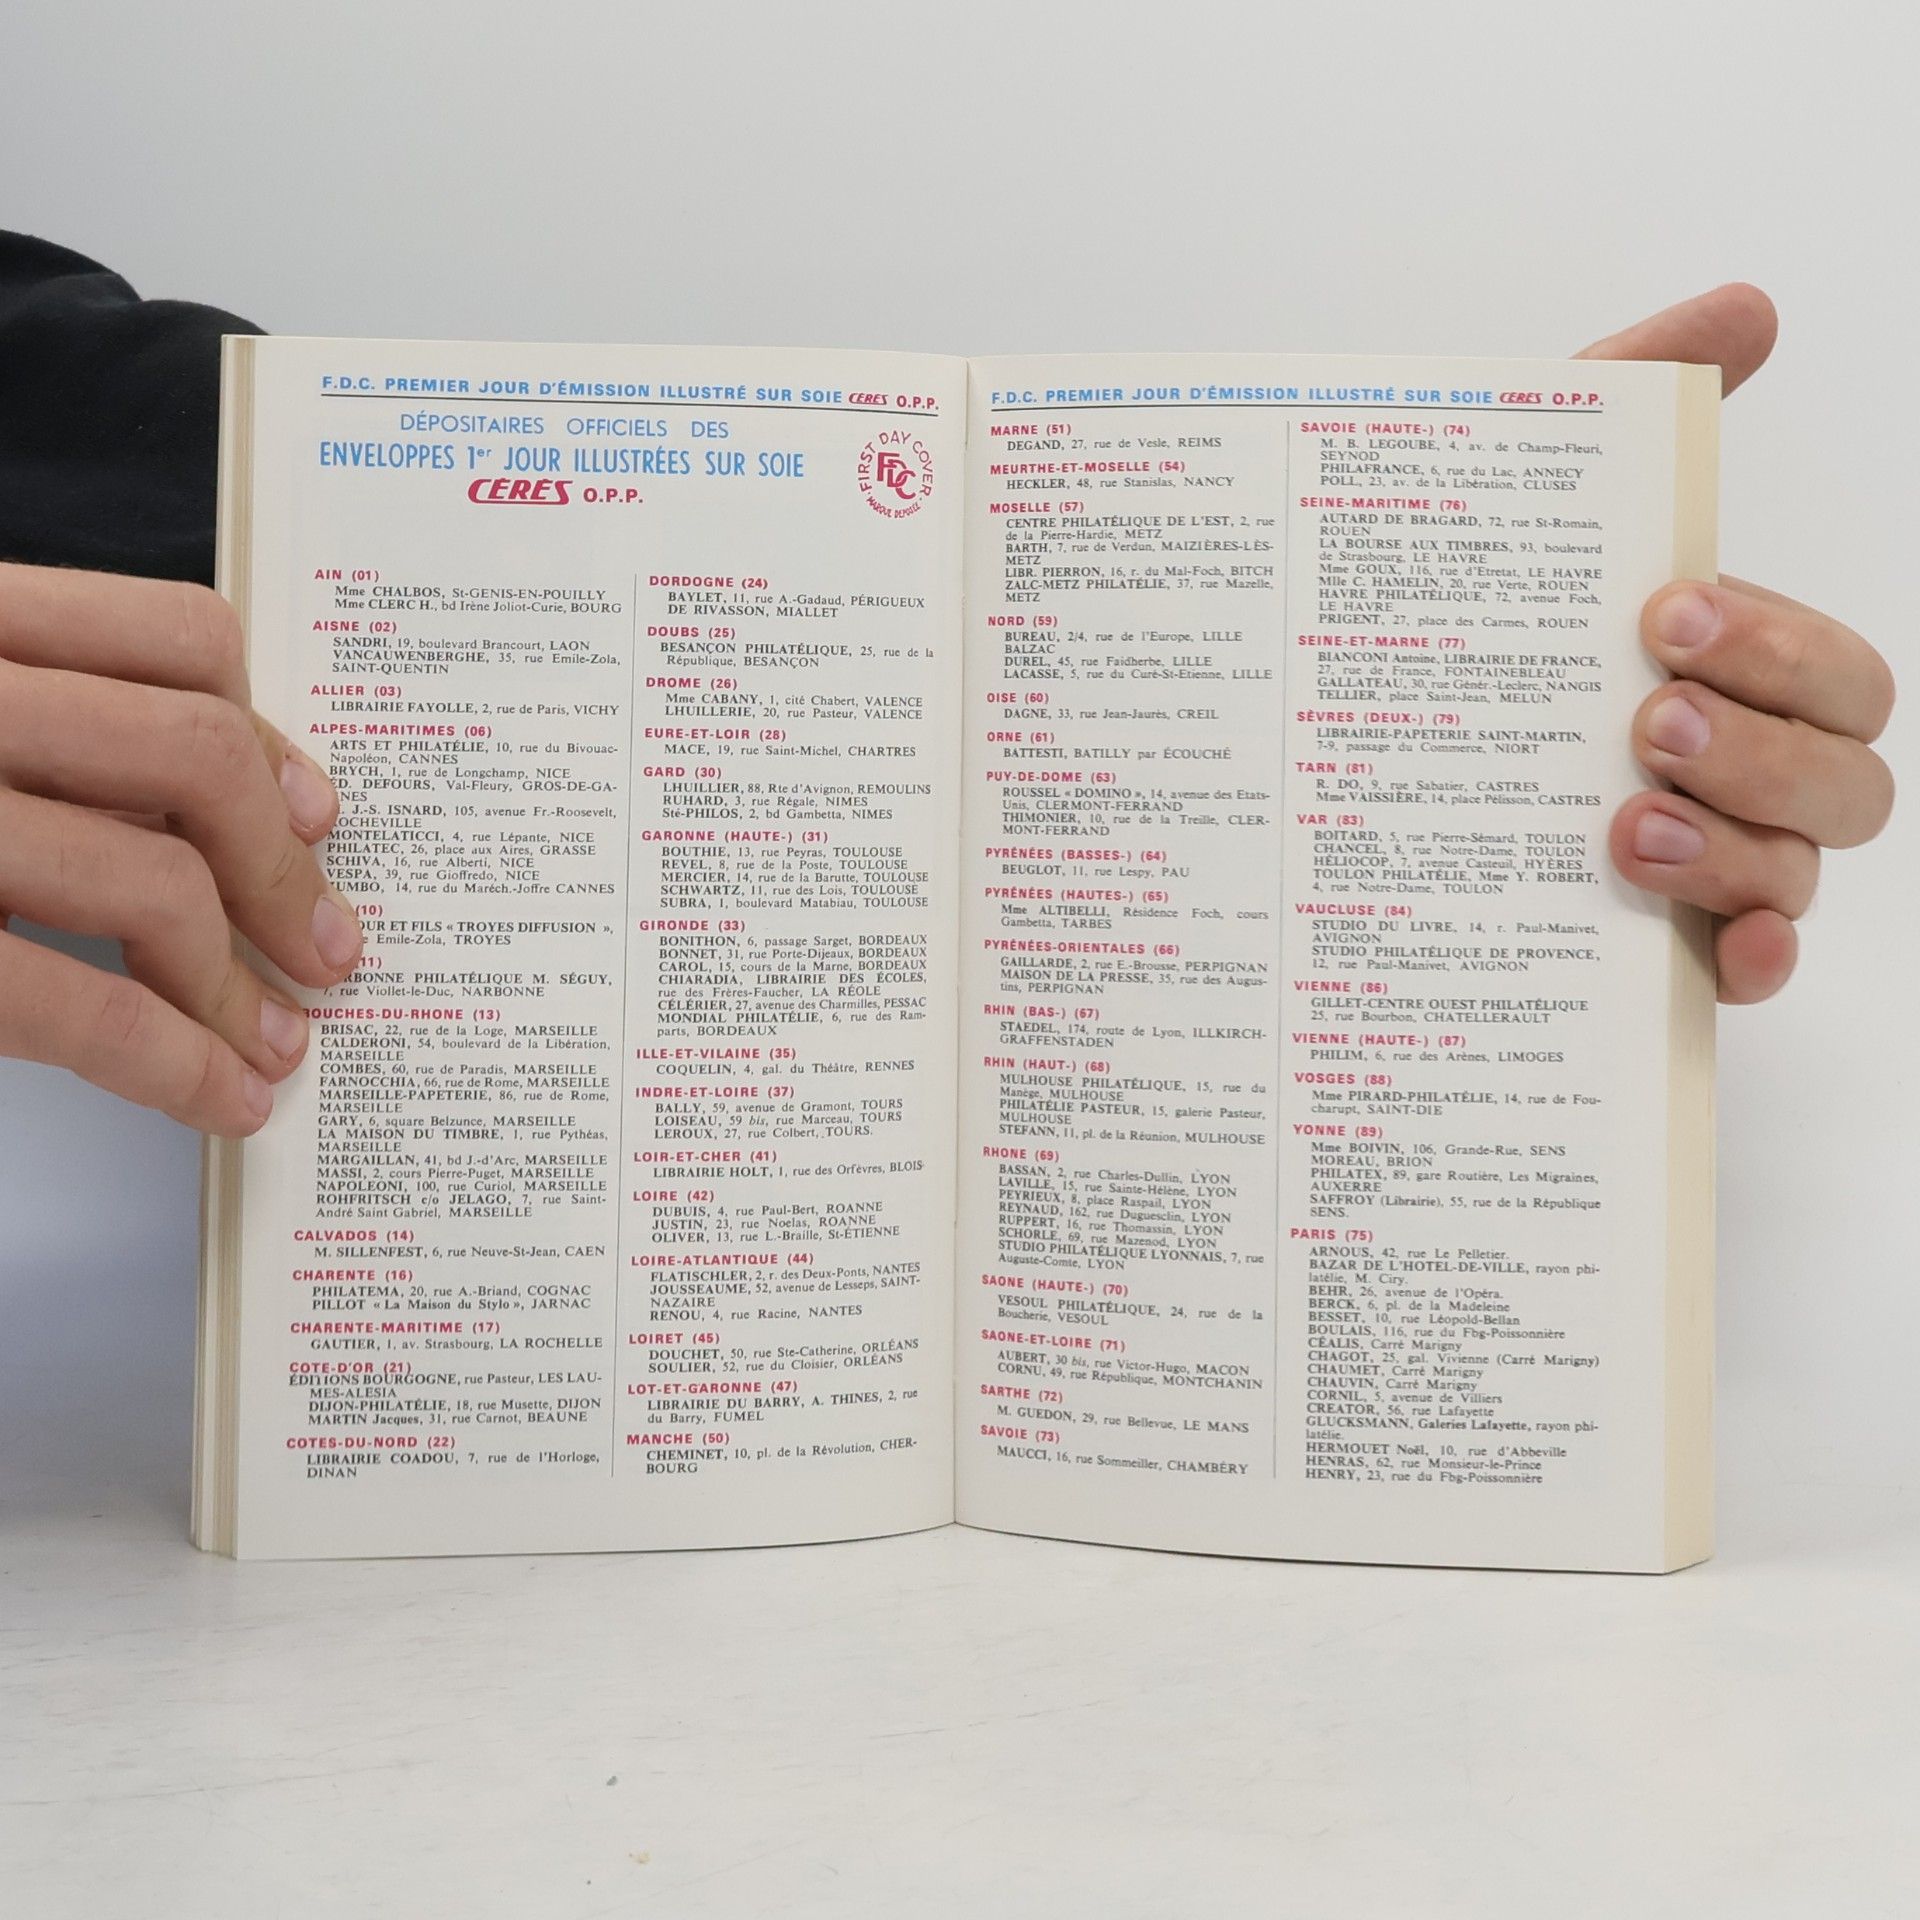 F.D.C. PREMIER JOUR D'ÉMISSION ILLUSTRÉ SUR SOIE CÉRÈS O.P.P.
DÉPOSITAIRES OFFICIELS DES
ENVELOPPES 1er JOUR ILLUSTRÉES SUR SOIE
CÉRÈS O.P.P.
FIRST DAY COVER
FDC
MARQUE DÉPOSÉE
AIN (01)
Mme CHALBOS, St-GENIS-EN-POUILLY
Mme CLERC H., bd Irène Joliot-Curie, BOURG
AISNE (02)
SANDRI, 19, boulevard Brancourt, LAON
VANCAUWENBERGHE, 35, rue Emile-Zola,
SAINT-QUENTIN
ALLIER (03)
LIBRAIRIE FAYOLLE, 2, rue de Paris, VICHY
ALPES-MARITIMES (06)
ARTS ET PHILATÉLIE, 10, rue du Bivouac-
Napoléon, CANNES
BRYCH, 1, rue de Longchamp, NICE
ÉD. DEFOURS, Val-Fleury, GROS-DE-GA-
NES
J.-S. ISNARD, 105, avenue Fr.-Roosevelt,
ROCHEVILLE
MONTELATICCI, 4, rue Lépante, NICE
PHILATEC, 26, place aux Aires, GRASSE
SCHIVA, 16, rue Alberti, NICE
VESPA, 39, rue Gioffredo, NICE
ZUMBO, 14, rue du Maréch.-Joffre CANNES
(10)
OUR ET FILS « TROYES DIFFUSION »,
Emile-Zola, TROYES
11)
RBONNE PHILATÉLIQUE M. SÉGUY,
7, rue Viollet-le-Duc, NARBONNE
BOUCHES-DU-RHONE (13)
BRISAC, 22, rue de la Loge, MARSEILLE
CALDERONI, 54, boulevard de la Libération,
MARSEILLE
COMBES, 60, rue de Paradis, MARSEILLE
FARNOCCHIA, 66, rue de Rome, MARSEILLE
MARSEILLE-PAPETERIE, 86, rue de Rome,
MARSEILLE
GARY, 6, square Belzunce, MARSEILLE
LA MAISON DU TIMBRE, 1, rue Pythéas,
MARSEILLE
MARGAILLAN, 41, bd J.-d'Arc, MARSEILLE
MASSI, 2, cours Pierre-Puget, MARSEILLE
NAPOLEONI, 100, rue Curiol, MARSEILLE
ROHFRITSCH c/o JELAGO, 7, rue Saint-
André Saint Gabriel, MARSEILLE
CALVADOS (14)
M. SILLENFEST, 6, rue Neuve-St-Jean, CAEN
CHARENTE (16)
PHILATEMA, 20, rue A.-Briand, COGNAC
PILLOT « La Maison du Stylo », JARNAC
CHARENTE-MARITIME (17)
GAUTIER, 1, av. Strasbourg, LA ROCHELLE
COTE-D'OR (21)
ÉDITIONS BOURGOGNE, rue Pasteur, LES LAU-
MES-ALESIA
DIJON-PHILATÉLIE, 18, rue Musette, DIJON
MARTIN Jacques, 31, rue Carnot, BEAUNE
COTES-DU-NORD (22)
LIBRAIRIE COADOU, 7, rue de l'Horloge,
DINAN
DORDOGNE (24)
BAYLET, 11, rue A.-Gadaud, PÉRIGUEUX
DE RIVASSON, MIALLET
DOUBS (25)
BESANÇON PHILATÉLIQUE, 25, rue de la
République, BESANÇON
DROME (26)
Mme CABANY, 1, cité Chabert, VALENCE
LHUILLERIE, 20, rue Pasteur, VALENCE
EURE-ET-LOIR (28)
MACE, 19, rue Saint-Michel, CHARTRES
GARD (30)
LHUILLIER, 88, Rte d'Avignon, REMOULINS
RUHARD, 3, rue Régale, NIMES
Sté-PHILOS, 2, bd Gambetta, NIMES
GARONNE (HAUTE-) (31)
BOUTHIE, 13, rue Peyras, TOULOUSE
REVEL, 8, rue de la Poste, TOULOUSE
MERCIER, 14, rue de la Barutte, TOULOUSE
SCHWARTZ, 11, rue des Lois, TOULOUSE
SUBRA, 1, boulevard Matabiau, TOULOUSE
GIRONDE (33)
BONITHON, 6, passage Sarget, BORDEAUX
BONNET, 31, rue Porte-Dijeaux, BORDEAUX
CAROL, 15, cours de la Marne, BORDEAUX
CHIARADIA, LIBRAIRIE DES ÉCOLES,
rue des Frères-Faucher, LA RÉOLE
CÉLÉRIER, 27, avenue des Charmilles, PESSAC
MONDIAL PHILATÉLIE, 6, rue des Ram-
parts, BORDEAUX
ILLE-ET-VILAINE (35)
COQUELIN, 4, gal. du Théâtre, RENNES
INDRE-ET-LOIRE (37)
BALLY, 59, avenue de Gramont, TOURS
LOISEAU, 59 bis, rue Marceau, TOURS
LEROUX, 27, rue Colbert, TOURS.
LOIR-ET-CHER (41)
LIBRAIRIE HOLT, 1, rue des Orfèvres, BLOIS
LOIRE (42)
DUBUIS, 4, rue Paul-Bert, ROANNE
JUSTIN, 23, rue Noelas, ROANNE
OLIVER, 13, rue L.-Braille, St-ÉTIENNE
LOIRE-ATLANTIQUE (44)
FLATISCHLER, 2, r. des Deux-Ponts, NANTES
JOUSSEAUME, 52, avenue de Lesseps, SAINT-
NAZAIRE
RENOU, 4, rue Racine, NANTES
LOIRET (45)
DOUCHET, 50, rue Ste-Catherine, ORLÉANS
SOULIER, 52, rue du Cloisier, ORLÉANS
LOT-ET-GARONNE (47)
LIBRAIRIE DU BARRY, A. THINES, 2, rue
du Barry, FUMEL
MANCHE (50)
CHEMINET, 10, pl. de la Révolution, CHER-
BOURG
F.D.C. PREMIER JOUR D'ÉMISSION ILLUSTRÉ SUR SOIE CÉRÈS O.P.P.
MARNE (51)
DEGAND, 27, rue de Vesle, REIMS
MEURTHE-ET-MOSELLE (54)
HECKLER, 48, rue Stanislas, NANCY
MOSELLE (57)
CENTRE PHILATÉLIQUE DE L'EST, 2, rue
de la Pierre-Hardie, METZ
BARTH, 7, rue de Verdun, MAIZIÈRES-LÈS-
METZ
LIBR. PIERRON, 16, r. du Mal-Foch, BITCH
ZALC-METZ PHILATÉLIE, 37, rue Mazelle,
METZ
NORD (59)
BUREAU, 2/4, rue de l'Europe, LILLE
BALZAC
DUREL, 45, rue Faidherbe, LILLE
LACASSE, 5, rue du Curé-St-Etienne, LILLE
OISE (60)
DAGNE, 33, rue Jean-Jaurès, CREIL
ORNE (61)
BATTESTI, BATILLY par ÉCOUCHÉ
PUY-DE-DOME (63)
ROUSSEL « DOMINO », 14, avenue des Etats-
Unis, CLERMONT-FERRAND
THIMONIER, 10, rue de la Treille, CLER-
MONT-FERRAND
PYRÉNÉES (BASSES-) (64)
BEUGLOT, 11, rue Lespy, PAU
PYRÉNÉES (HAUTES-) (65)
Mme ALTIBELLI, Résidence Foch, cours
Gambetta, TARBES
PYRÉNÉES-ORIENTALES (66)
GAILLARDE, 2, rue E.-Brousse, PERPIGNAN
MAISON DE LA PRESSE, 35, rue des Augus-
tins, PERPIGNAN
RHIN (BAS-) (67)
STAEDEL, 174, route de Lyon, ILLKIRCH-
GRAFFENSTADEN
RHIN (HAUT-) (68)
MULHOUSE PHILATÉLIQUE, 15, rue du
Manège, MULHOUSE
PHILATÉLIE PASTEUR, 15, galerie Pasteur,
MULHOUSE
STEFANN, 11, pl. de la Réunion, MULHOUSE
RHONE (69)
BASSAN, 2, rue Charles-Dullin, LYON
LAVILLE, 15, rue Sainte-Hélène, LYON
PEYRIEUX, 8, place Raspail, LYON
REYNAUD, 162, rue Duguesclin, LYON
RUPPERT, 16, rue Thomassin, LYON
SCHORLE, 69, rue Mazenod, LYON
STUDIO PHILATÉLIQUE LYONNAIS, 7, rue
Auguste-Comte, LYON
SAONE (HAUTE-) (70)
VESOUL PHILATÉLIQUE, 24, rue de la
Boucherie, VESOUL
SAONE-ET-LOIRE (71)
AUBERT, 30 bis, rue Victor-Hugo, MACON
CORNU, 49, rue République, MONTCHANIN
SARTHE (72)
M. GUEDON, 29, rue Bellevue, LE MANS
SAVOIE (73)
MAUCCI, 16, rue Sommeiller, CHAMBÉRY
SAVOIE (HAUTE-) (74)
M. B. LEGOUBE, 4, av. de Champ-Fleuri,
SEYNOD
PHILAFRANCE, 6, rue du Lac, ANNECY
POLL, 23, av. de la Libération, CLUSES
SEINE-MARITIME (76)
AUTARD DE BRAGARD, 72, rue St-Romain,
ROUEN
LA BOURSE AUX TIMBRES, 93, boulevard
de Strasbourg, LE HAVRE
Mme GOUX, 116, rue d'Etretat, LE HAVRE
Mlle C. HAMELIN, 20, rue Verte, ROUEN
HAVRE PHILATÉLIQUE, 72, avenue Foch,
LE HAVRE
PRIGENT, 27, place des Carmes, ROUEN
SEINE-ET-MARNE (77)
BIANCONI Antoine, LIBRAIRIE DE FRANCE,
27, rue de France, FONTAINEBLEAU
GALLATEAU, 30, rue Génér.-Leclerc, NANGIS
TELLIER, place Saint-Jean, MELUN
SÈVRES (DEUX-) (79)
LIBRAIRIE-PAPETERIE SAINT-MARTIN,
7-9, passage du Commerce, NIORT
TARN (81)
R. DO, 9, rue Sabatier, CASTRES
Mme VAISSIÈRE, 14, place Pélisson, CASTRES
VAR (83)
BOITARD, 5, rue Pierre-Sémard, TOULON
CHANCEL, 8, rue Notre-Dame, TOULON
HÉLIOCOP, 7, avenue Casteuil, HYÈRES
TOULON PHILATÉLIE, Mme Y. ROBERT,
4, rue Notre-Dame, TOULON
VAUCLUSE (84)
STUDIO DU LIVRE, 14, r. Paul-Manivet,
AVIGNON
STUDIO PHILATÉLIQUE DE PROVENCE,
12, rue Paul-Manivet, AVIGNON
VIENNE (86)
GILLET-CENTRE OUEST PHILATÉLIQUE
25, rue Bourbon, CHATELLERAULT
VIENNE (HAUTE-) (87)
PHILIM, 6, rue des Arènes, LIMOGES
VOSGES (88)
Mme PIRARD-PHILATÉLIE, 14, rue de Fou-
charupt, SAINT-DIE
YONNE (89)
Mme BOIVIN, 106, Grande-Rue, SENS
MOREAU, BRION
PHILATEX, 89, gare Routière, Les Migraines,
AUXERRE
SAFFROY (Librairie), 55, rue de la République
SENS.
PARIS (75)
ARNOUS, 42, rue Le Pelletier.
BAZAR DE L'HOTEL-DE-VILLE, rayon phi-
latélie, M. Ciry.
BEHR, 26, avenue de l'Opéra.
BERCK, 6, pl. de la Madeleine
BESSET, 10, rue Léopold-Bellan
BOULAIS, 116, rue du Fbg-Poissonnière
CÉALIS, Carré Marigny
CHAGOT, 25, gal. Vivienne (Carré Marigny)
CHAUMET, Carré Marigny
CHAUVIN, Carré Marigny
CORNIL, 5, avenue de Villiers
CREATOR, 56, rue Lafayette
GLUCKSMANN, Galeries Lafayette, rayon phi-
latélie.
HERMOUET Noël, 10, rue d'Abbeville
HENRAS, 62, rue Monsieur-le-Prince
HENRY, 23, rue du Fbg-Poissonnière